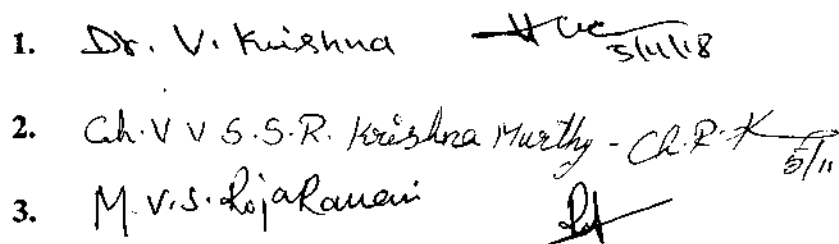 1. Dr. V. Krishna 5/11/18
2. Ch. V V S.S.R. Krishna Murthy - Ch.R.K 5/11
3. M.V.S. Roja Ramani